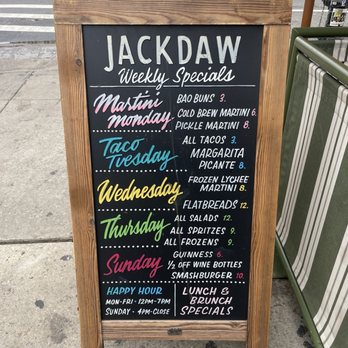 JACKDAW
Weekly Specials
Martini Monday
BAO BUNS 3.
COLD BREW MARTINI 6.
PICKLE MARTINI 8.
Taco Tuesday
ALL TACOS 3.
MARGARITA
PICANTE 8.
Wednesday
FROZEN LYCHEE
MARTINI 8.
FLATBREADS 12.
Thursday
ALL SALADS 12.
ALL SPRITZES 9.
ALL FROZENS 9.
Sunday
GUINNESS 6.
½ OFF WINE BOTTLES
SMASHBURGER 10.
HAPPY HOUR
MON-FRI - 12PM-7PM
SUNDAY - 4PM-CLOSE
LUNCH &
BRUNCH
SPECIALS